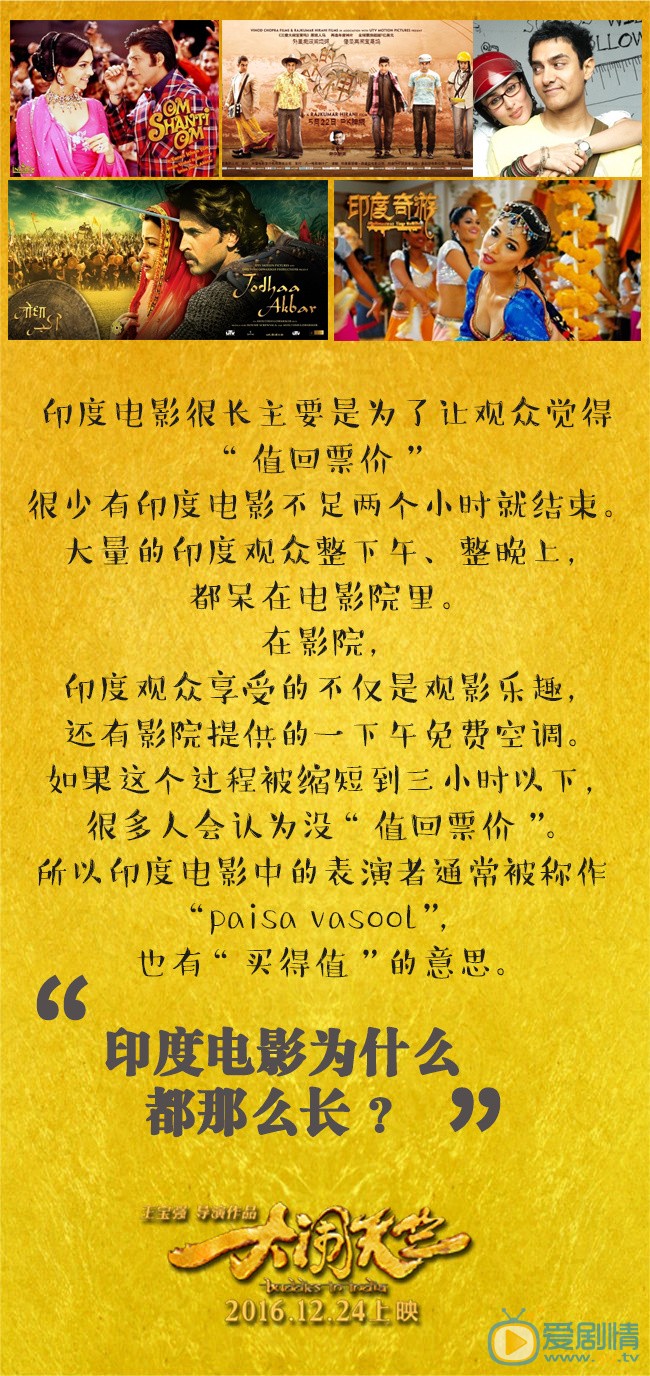 OM
SHANTI
OM
VINOD CHOPRA FILMS & RAJKUMAR HIRANI FILMS
A RAJKUMAR HIRANI FILM
5月22日
FOLLOW
Jodhaa
Akbar
जोधा
印度奇游
印度电影很长主要是为了让观众觉得
“值回票价”
很少有印度电影不足两个小时就结束。
大量的印度观众整下午、整晚上，
都呆在电影院里。
在影院，
印度观众享受的不仅是观影乐趣，
还有影院提供的一下午免费空调。
如果这个过程被缩短到三小时以下，
很多人会认为没“值回票价”。
所以印度电影中的表演者通常被称作
“paisa vasool”，
也有“买得值”的意思。
“印度电影为什么
都那么长？”
王宝强 导演作品
大闹天竺
buddies in india
2016.12.24上映
爱剧情